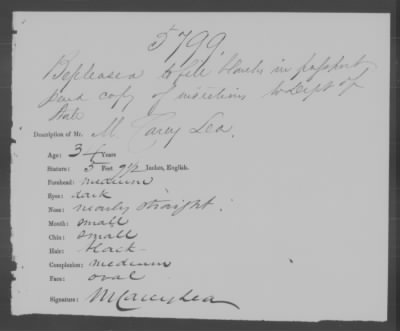 5799.
Be pleased to fill blanks in passport,
send copy of insertions to Dept of
State
Description of Mr. M. Carey Lea.
Age: 34 Years
Stature: 5 Feet 9 1/2 Inches, English.
Forehead: medium
Eyes: dark
Nose: nearly straight.
Mouth: small
Chin: small
Hair: black
Complexion: medium
Face: oval
Signature: M Carey Lea